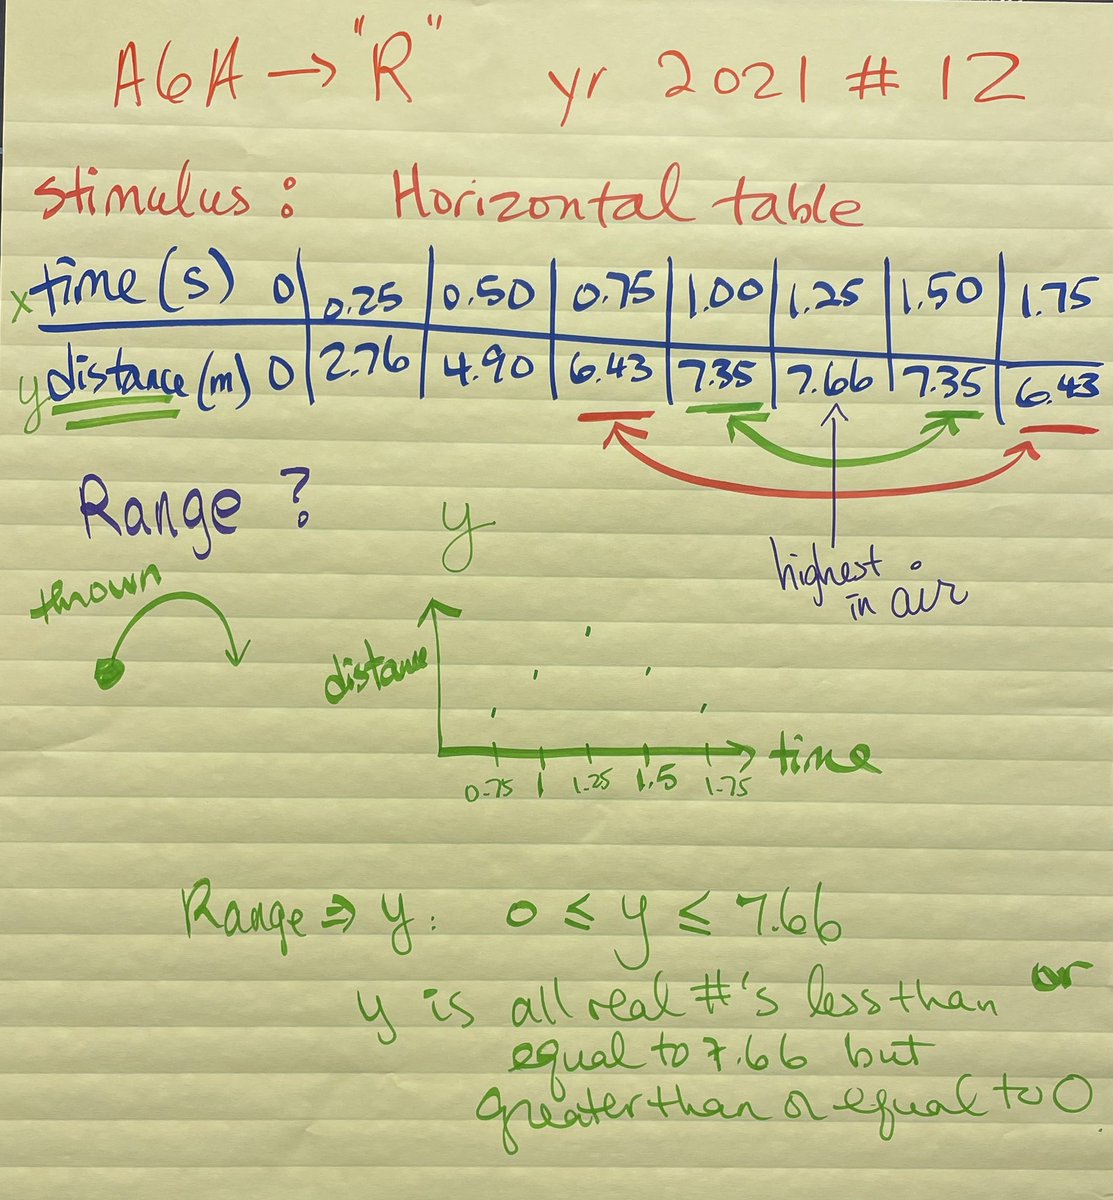 A6A → "R" yr 2021 # 12
stimulus : Horizontal table
x time (s) 0 0.25 0.50 0.75 1.00 1.25 1.50 1.75
y distance (m) 0 2.76 4.90 6.43 7.35 7.66 7.35 6.43
Range ?
y
highest
in air
thrown
distance
time
0.75 1 1.25 1.5 1.75
Range ⇒ y: 0 ≤ y ≤ 7.66
y is all real #'s less than or
equal to 7.66 but
greater than or equal to 0.